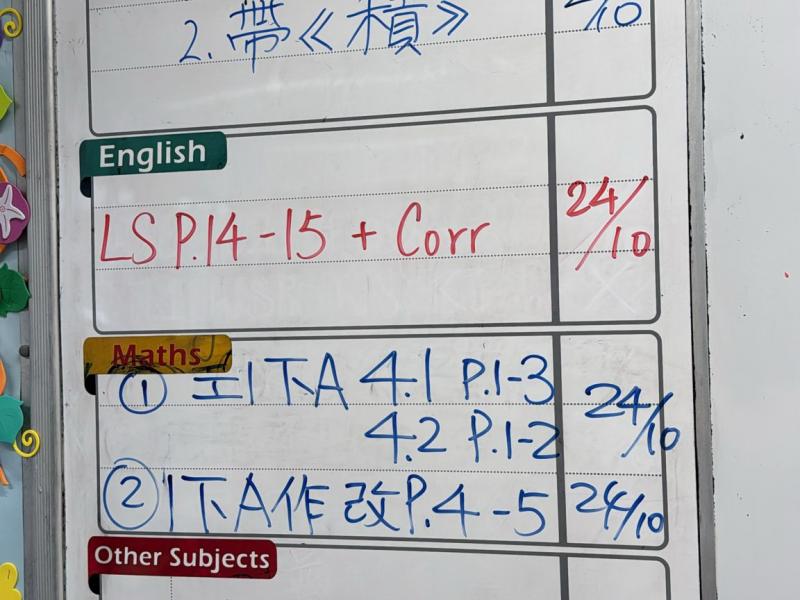 2. 帶《積》
/10
English
LS P.14-15 + Corr 24/10
Maths
① 工1下A 4.1 P.1-3
4.2 P.1-2 24/10
② 1下A作改P.4-5 24/10
Other Subjects